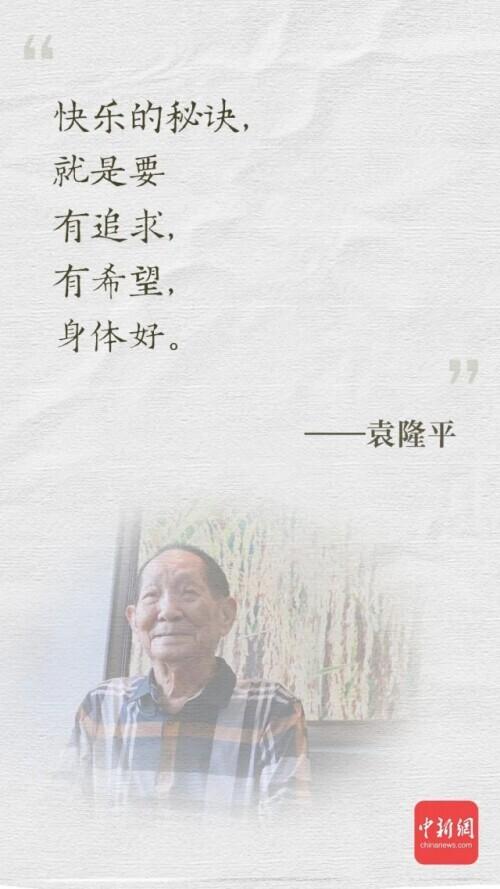 “
快乐的秘诀，
就是要
有追求，
有希望，
身体好。
”
——袁隆平
中新網
chinanews.com